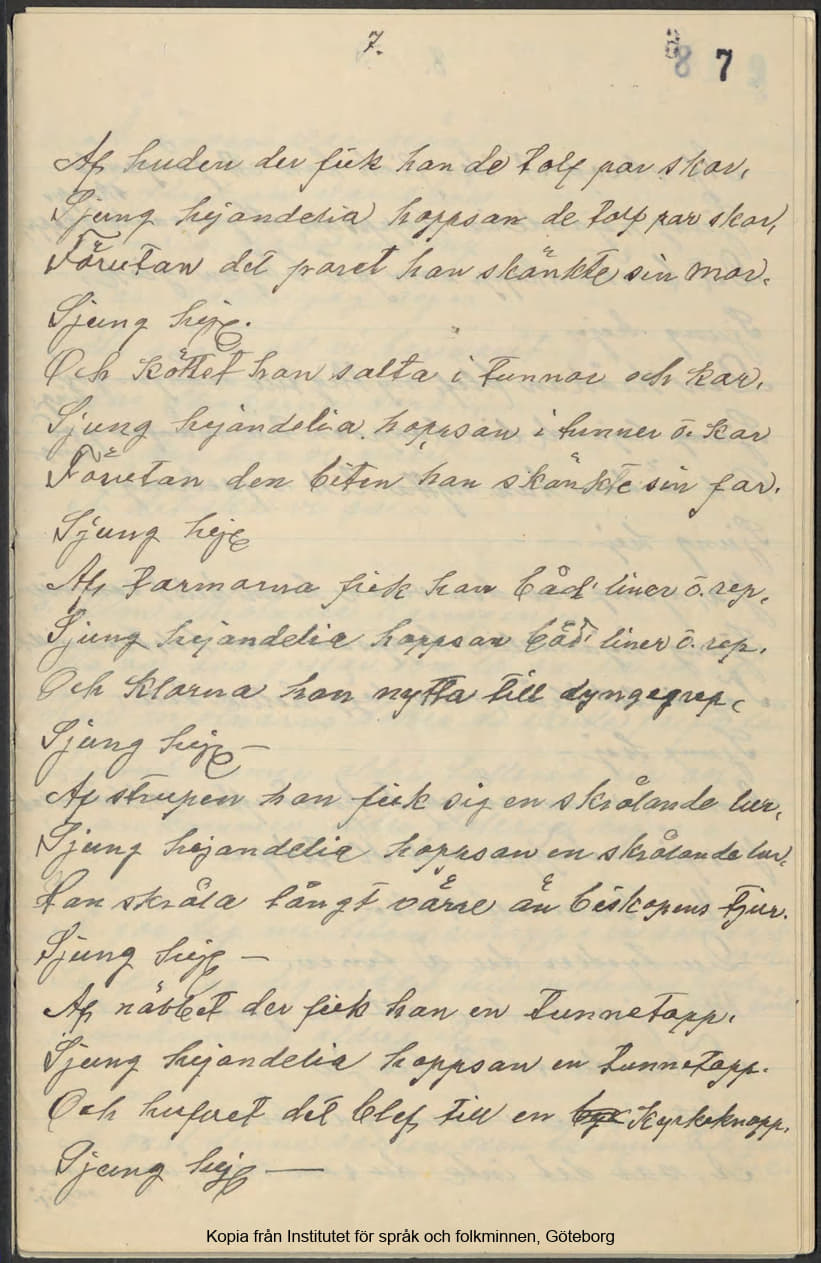 7.
8 7
Af huden der fick han de tolf par skor,
Sjung hejandelia hoppsan de tolf par skor,
Förutan det paret han skänkte sin mor.
Sjung hej
Och köttet han salta i tunnor och kar,
Sjung hejandelia hoppsan i tunner o. kar
Förutan den biten han skänkte sin far.
Sjung hej
Af tarmarna fick han båd' liner o. rep,
Sjung hejandelia hoppsan båd' liner o. rep.
Och klorna han nytta till dyngegrep,
Sjung hej —
Af strupen han fick sig en skrålande lur,
Sjung hejandelia hoppsan en skrålande lur,
Han skråla långt värre än biskopens tjur.
Sjung hej —
Af näbbet der fick han en tunnetapp.
Sjung hejandelia hoppsan en tunnetapp.
Och hufvet det blef till en kyrkeknapp,
Sjung hej —
Kopia från Institutet för språk och folkminnen, Göteborg